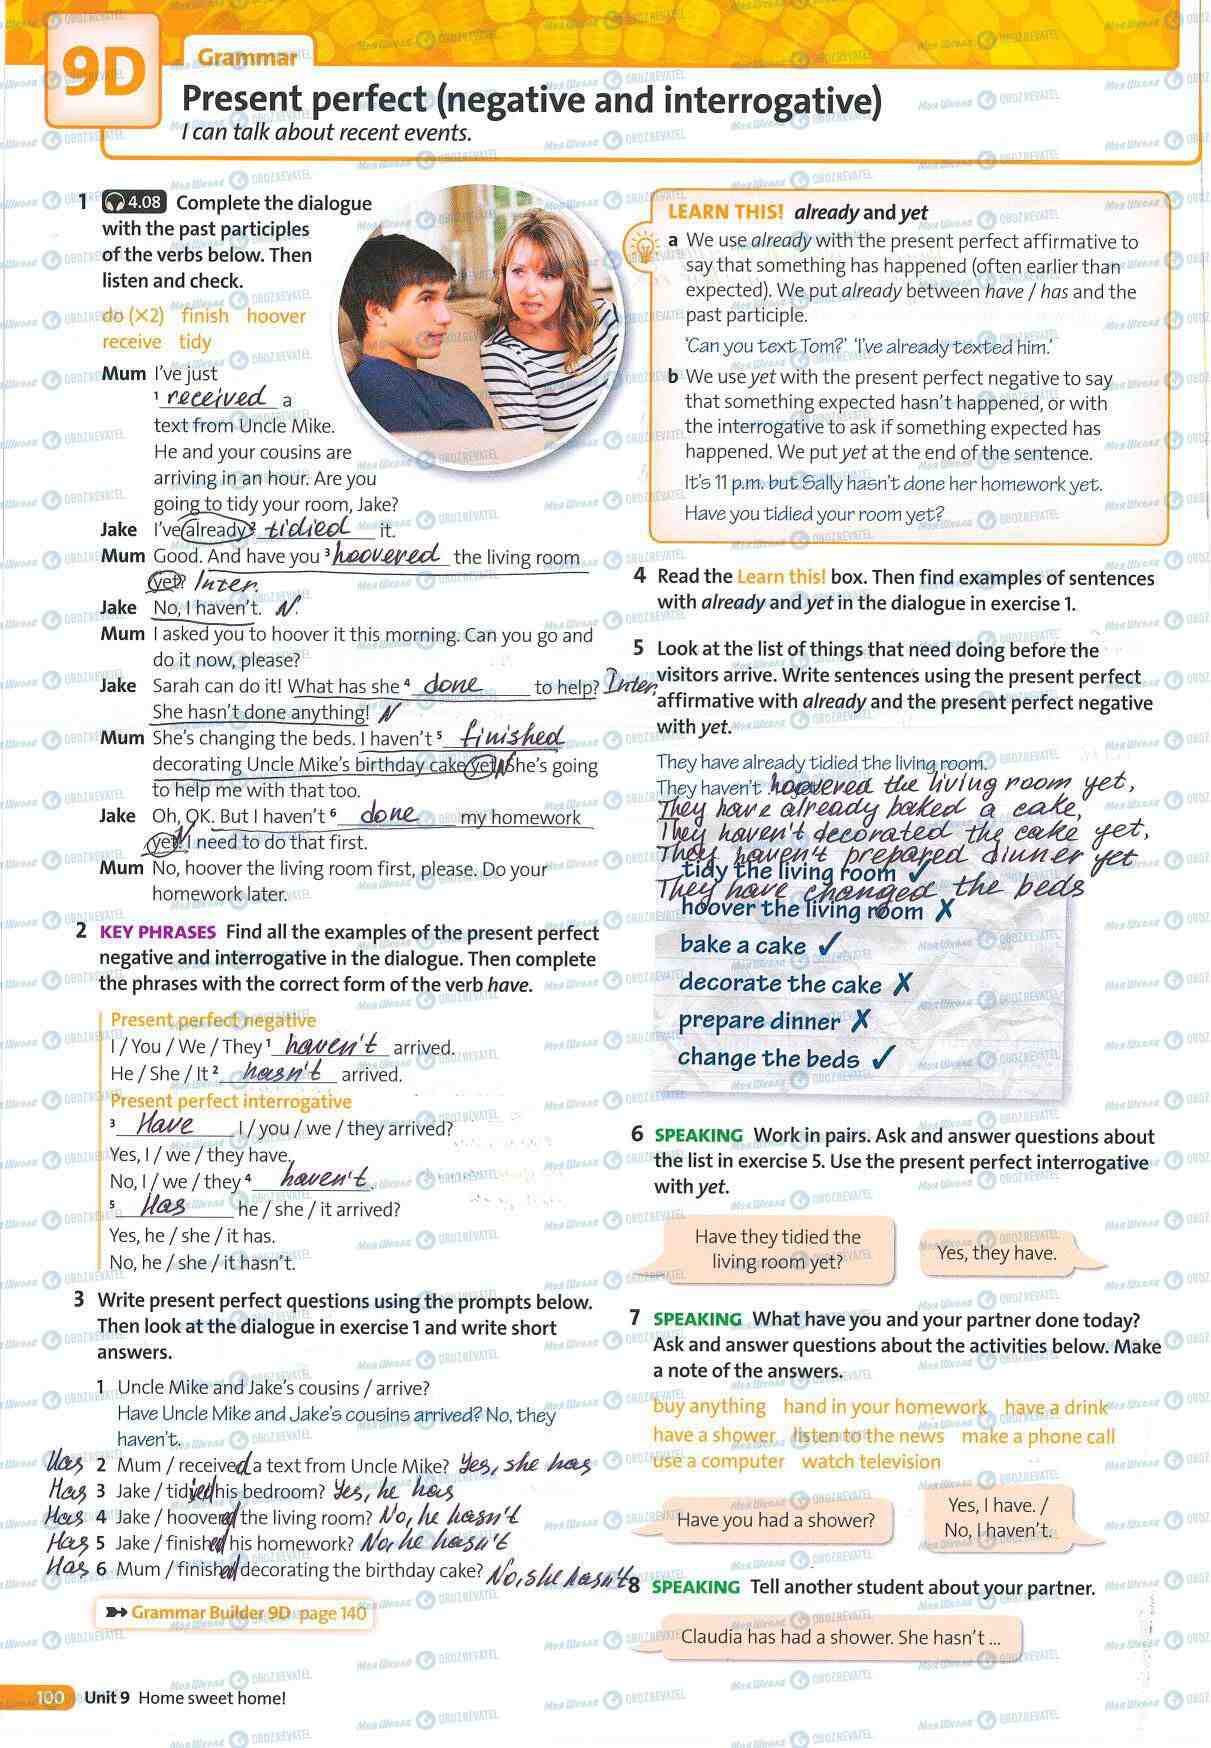 9D
Grammar
Present perfect (negative and interrogative)
I can talk about recent events.
1 4.08 Complete the dialogue
with the past participles
of the verbs below. Then
listen and check.
do (×2) finish hoover
receive tidy
Mum I've just
1 received a
text from Uncle Mike.
He and your cousins are
arriving in an hour. Are you
going to tidy your room, Jake?
Jake I've already 2 tidied it.
Mum Good. And have you 3 hoovered the living room
yet? Inter.
Jake No, I haven't. N.
Mum I asked you to hoover it this morning. Can you go and
do it now, please?
Jake Sarah can do it! What has she 4 done to help? Inter.
She hasn't done anything! N
Mum She's changing the beds. I haven't 5 finished
decorating Uncle Mike's birthday cake yet. N She's going
to help me with that too.
Jake Oh, OK. But I haven't 6 done my homework
yet! N I need to do that first.
Mum No, hoover the living room first, please. Do your
homework later.
2 KEY PHRASES Find all the examples of the present perfect
negative and interrogative in the dialogue. Then complete
the phrases with the correct form of the verb have.
Present perfect negative
I / You / We / They 1 haven't arrived.
He / She / It 2 hasn't arrived.
Present perfect interrogative
3 Have I / you / we / they arrived?
Yes, I / we / they have.
No, I / we / they 4 haven't.
5 Has he / she / it arrived?
Yes, he / she / it has.
No, he / she / it hasn't.
3 Write present perfect questions using the prompts below.
Then look at the dialogue in exercise 1 and write short
answers.
1 Uncle Mike and Jake's cousins / arrive?
Have Uncle Mike and Jake's cousins arrived? No, they
haven't.
Has 2 Mum / received a text from Uncle Mike? Yes, she has
Has 3 Jake / tidied his bedroom? Yes, he has
Has 4 Jake / hoovered the living room? No, he hasn't
Has 5 Jake / finished his homework? No, he hasn't
Has 6 Mum / finished decorating the birthday cake? No, she hasn't
Grammar Builder 9D page 140
LEARN THIS! already and yet
a We use already with the present perfect affirmative to
say that something has happened (often earlier than
expected). We put already between have / has and the
past participle.
'Can you text Tom?' 'I've already texted him.'
b We use yet with the present perfect negative to say
that something expected hasn't happened, or with
the interrogative to ask if something expected has
happened. We put yet at the end of the sentence.
It's 11 p.m. but Sally hasn't done her homework yet.
Have you tidied your room yet?
4 Read the Learn this! box. Then find examples of sentences
with already and yet in the dialogue in exercise 1.
5 Look at the list of things that need doing before the
visitors arrive. Write sentences using the present perfect
affirmative with already and the present perfect negative
with yet.
They have already tidied the living room.
They haven't hoovered the living room yet,
They have already baked a cake,
They haven't decorated the cake yet,
They haven't prepared dinner yet
tidy the living room ✓
They have changed the beds
hoover the living room ✗
bake a cake ✓
decorate the cake ✗
prepare dinner ✗
change the beds ✓
6 SPEAKING Work in pairs. Ask and answer questions about
the list in exercise 5. Use the present perfect interrogative
with yet.
Have they tidied the
living room yet?
Yes, they have.
7 SPEAKING What have you and your partner done today?
Ask and answer questions about the activities below. Make
a note of the answers.
buy anything hand in your homework have a drink
have a shower listen to the news make a phone call
use a computer watch television
Have you had a shower?
Yes, I have. /
No, I haven't.
8 SPEAKING Tell another student about your partner.
Claudia has had a shower. She hasn't ...
100 Unit 9 Home sweet home!